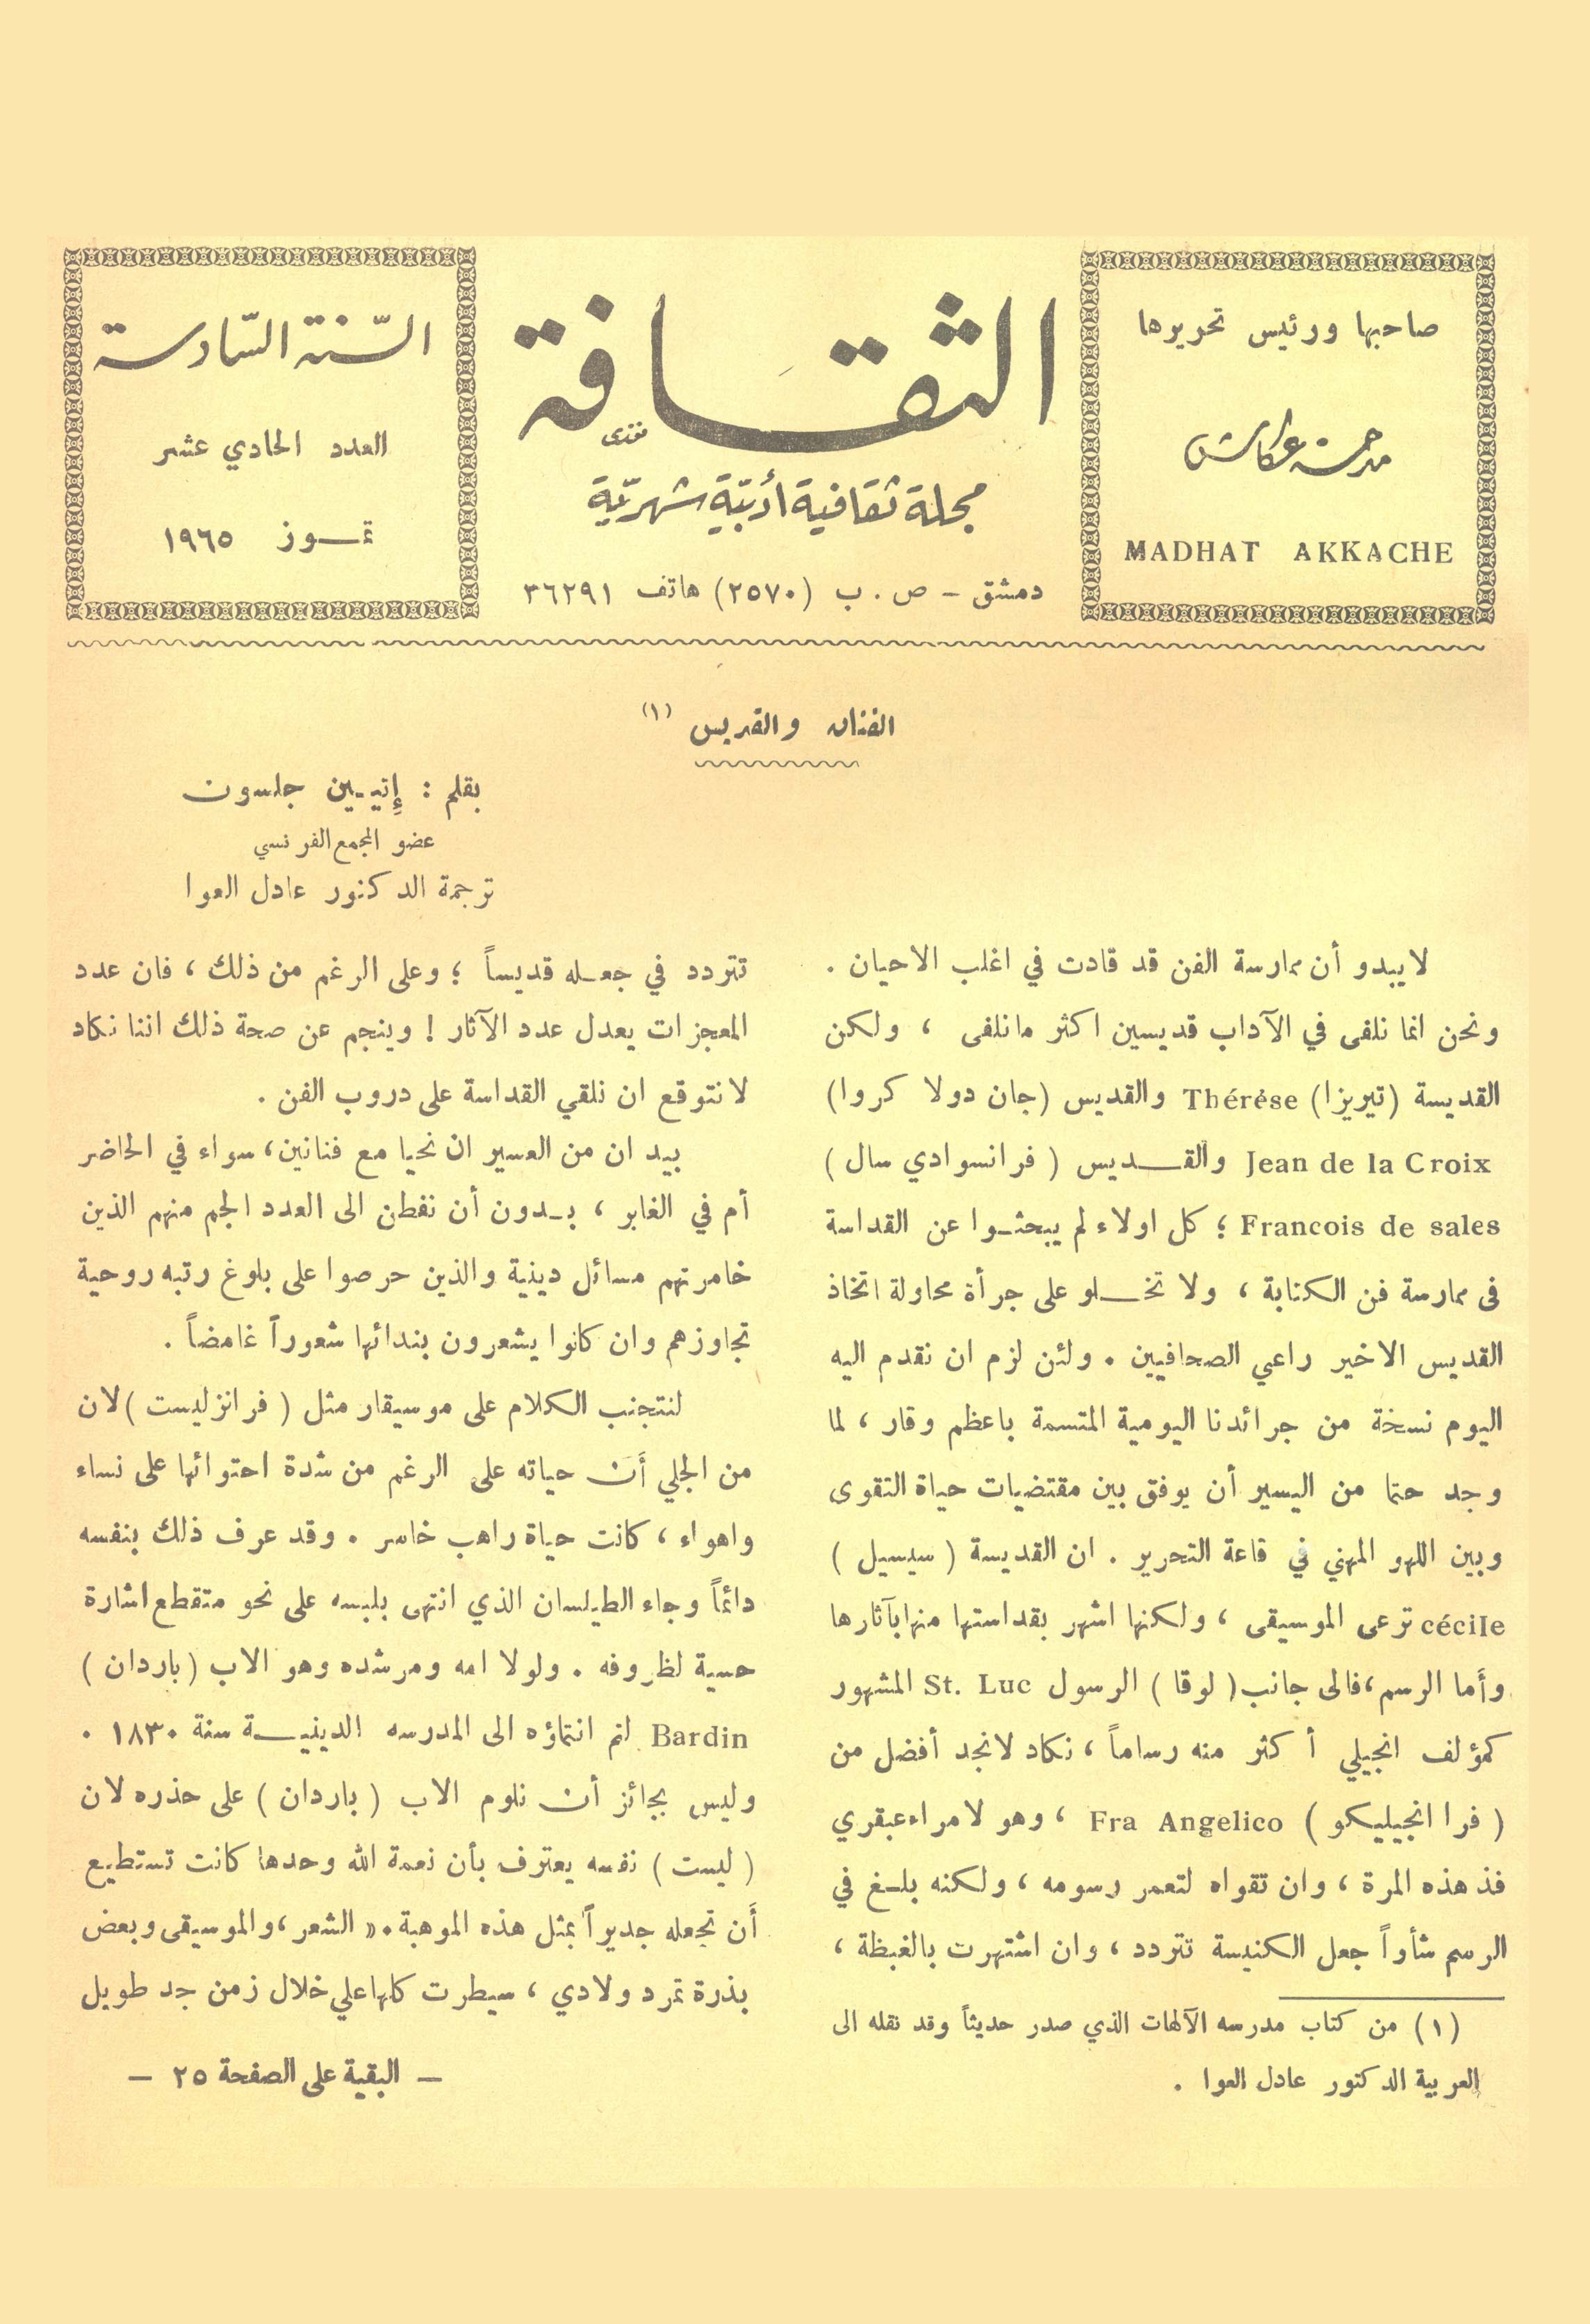 صاحبها ورئيس تحريرها
مدحت عكاش
MADHAT AKKACHE
الثقافة
مجلة ثقافية أدبيّة شهريّة
دمشق – ص . ب (٢٥٧٠) هاتف ٣٦٢٩١
السّنة السّادسة
العدد الحادي عشر
تمـوز ١٩٦٥
الفنان والقديس (١)
بقلم : إتيـين جلسون
عضو المجمع الفرنسي
ترجمة الدكتور عادل العوا
لايبدو أن ممارسة الفن قد قادت في اغلب الاحيان .
ونحن انما نلفى في الآداب قديسين اكثر مانلفى ، ولكن
القديسة (تيريزا) Thérése والقديس (جان دولا كروا)
Jean de la Croix والقـــديس ( فرانسوادي سال )
Francois de sales ؛ كل اولاء لم يبحثـوا عن القداسة
فى ممارسة فن الكتابة ، ولا تخـلو على جرأة محاولة اتخاذ
القديس الاخير راعي الصحافيين . ولئن لزم ان نقدم اليه
اليوم نسخة من جرائدنا اليومية المتسمة باعظم وقار ، لما
وجد حتما من اليسير أن يوفق بين مقتضيات حياة التقوى
وبين اللهو المهني في قاعة التحرير . ان القديسة ( سيسيل )
cécile ترعى الموسيقى ، ولكنها اشهر بقداستها منها بآثارها
وأما الرسم ، فالى جانب ( لوقا ) الرسول St. Luc المشهور
كمؤلف انجيلي أكثر منه رساماً ، نكاد لانجد أفضل من
( فرا انجيليكو ) Fra Angelico ، وهو لامراء عبقري
فذ هذه المرة ، وان تقواه لتعمر رسومه ، ولكنه بلـغ في
الرسم شأواً جعل الكنيسة تتردد ، وان اشتهرت بالغبظة ،
(١) من كتاب مدرسه الآلهات الذي صدر حديثاً وقد نقله الى
العربية الدكتور عادل العوا .
تتردد في جعـله قديساً ؛ وعلى الرغم من ذلك ، فان عدد
المعجزات يعدل عدد الآثار ! وينجم عن صحة ذلك اننا نكاد
لانتوقع ان نلقي القداسة على دروب الفن .
بيد ان من العسير ان نحيا مع فنانين ، سواء في الحاضر
أم في الغابر ، بـدون أن نفطن الى العدد الجم منهم الذين
خامرتهم مسائل دينية والذين حرصوا على بلوغ رتبه روحية
تجاوزهم وان كانوا يشعرون بندائها شعوراً غامضاً .
لنتجنب الكلام على موسيقار مثل ( فرانزليست ) لان
من الجلي أن حياته على الرغم من شدة احتوائها على نساء
واهواء ، كانت حياة راهب خاسر . وقد عرف ذلك بنفسه
دائماً وجاء الطيلسان الذي انتهى بلبسه على نحو متقطع اشارة
حسية لظروفه . ولولا امه ومرشده وهو الاب ( باردان )
Bardin لتم انتماؤه الى المدرسه الدينيـــة سنة ١٨٣٠ .
وليس بجائز أن نلوم الاب ( باردان ) على حذره لان
( ليست ) نفسه يعترف بأن نعمة الله وحدها كانت تستطيع
أن تجعله جديراً بمثل هذه الموهبة . « الشعر ، والموسيقى وبعض
بذرة تمرد ولادي ، سيطرت كلها علي خلال زمن جد طويل
— البقية على الصفحة ٢٥ —